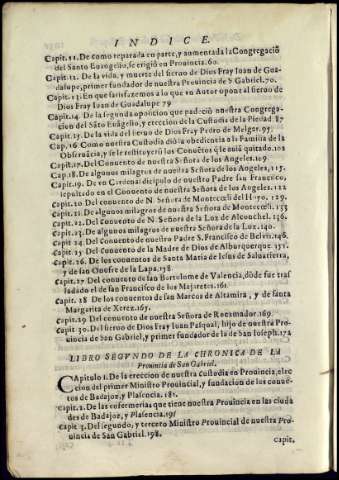 INDICE.
Capit. 11. De como reparada en parte, y aumentada la Congregaciõ
del Santo Euangelio, se erigiò en Prouincia. 60.
Capit. 12. De la vida, y muerte del sieruo de Dios Fray Iuan de Gua-
dalupe, primer fundador de nuestra Prouincia de S. Gabriel. 70.
Capit. 13. En que satisfazemos a lo que vn Autor opone al sieruo de
Dios Fray Iuan de Guadalupe 79
Capit. 14. De la segunda oposicion que padeciò nuestra Congrega-
cion del Sãto Euãgelio, y ereccion de la Custodia de la Piedad 87
Capit. 15. De la vida del sieruo de Dios Fray Pedro de Melgar. 95.
Cap. 16 Como nuestra Custodia diò la obediencia a la Familia de la
Obseruãcia, y se le restituyerõ los Conuẽtos q̃ le auiã quitado. 102
Capit. 17. Del Conuento de nuestra Señora de los Angeles. 109.
Cap. 18. De algunos milagros de nuestra Señora de los Angeles, 115.
Capit. 19. De vn Cardenal dicipulo de nuestro Padre san Francisco,
sepultado en el Conuento de nuestra Señora de los Angeles. 122
Capit. 20. Del conuento de N. Señora de Montecelí del Hoyo. 129.
Capit. 21. De algunos milagros de nuestra Señora de Montecelí. 133
Capit. 22. Del Conuento de N. Señora de la Luz de Alconchel. 136.
Capit. 23. De algunos milagros de nuestra Señora de la Luz. 140.
Capit. 24. Del Conuento de nuestro Padre S. Francisco de Belvis. 146.
Capit 25. Del conuento de la Madre de Dios de Alburquerque. 151.
Capit. 26. De los conuentos de Santa Maria de Iesus de Saluatierra,
y de san Onofre de la Lapa. 158.
Capit. 27. Del conuento de san Bartolome de Valencia, dõde fue tras
ladado el de san Francisco de los Majaretes. 161.
Capit. 28 De los conuentos de san Marcos de Altamira, y de santa
Margarita de Xerez. 167.
Capit. 29. Del conuento de nuestra Señora de Rocamador. 169.
Capit. 30. Del sieruo de Dios Fray Iuan Pasqual, hijo de nuestra Pro-
uincia de San Gabriel, y primer fundador de la de san Ioseph. 172
LIBRO SEGVNDO DE LA CHRONICA DE LA
Prouincia de San Gabriel.
Capitulo 1. De la ereccion de nuestra Custodia en Prouincia, elec
cion del primer Ministro Prouincial, y fundacion de los conuen-
tos de Badajoz, y Plasencia. 181.
Capit. 2. De las enfermerias que tiene nuestra Prouincia en las ciuda
des de Badajoz, y Plasencia. 191
Capit. 3. Del segundo, y tercero Ministro Prouincial de nuestra Pro-
uincia de San Gabriel. 198.
Capit.